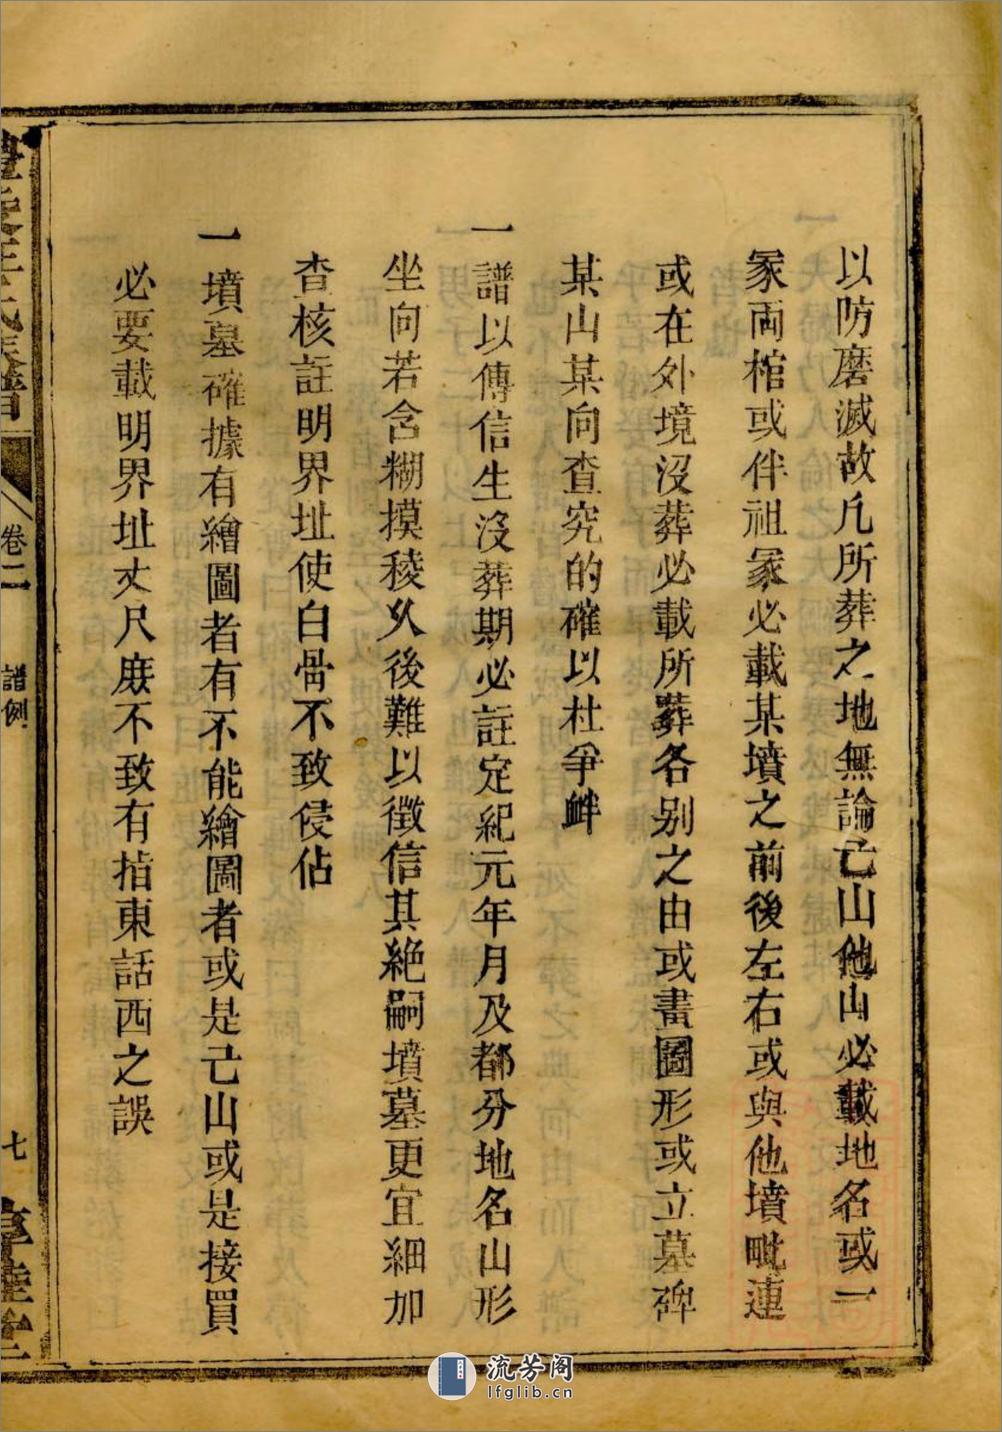 以防磨滅故凡所葬之地無論己山他山必載地名或一
冢両棺或伴祖冢必載某墳之前後左右或與他墳毗連
或在外境沒葬必載所葬各别之由或畫圖形或立墓碑
某山某向查究的確以杜爭衅
一譜以傳信生沒葬期必註定紀元年月及都分地名山形
坐向若含糊摸稜久後難以徵信其絶嗣墳墓更宜細加
查核註明界址使白骨不致侵佔
一墳墓確據有繪圖者有不能繪圖者或是己山或是接買
必要載明界址丈尺庻不致有指東話西之誤
卷二
譜例
七
流芳阁
lfglib.cn